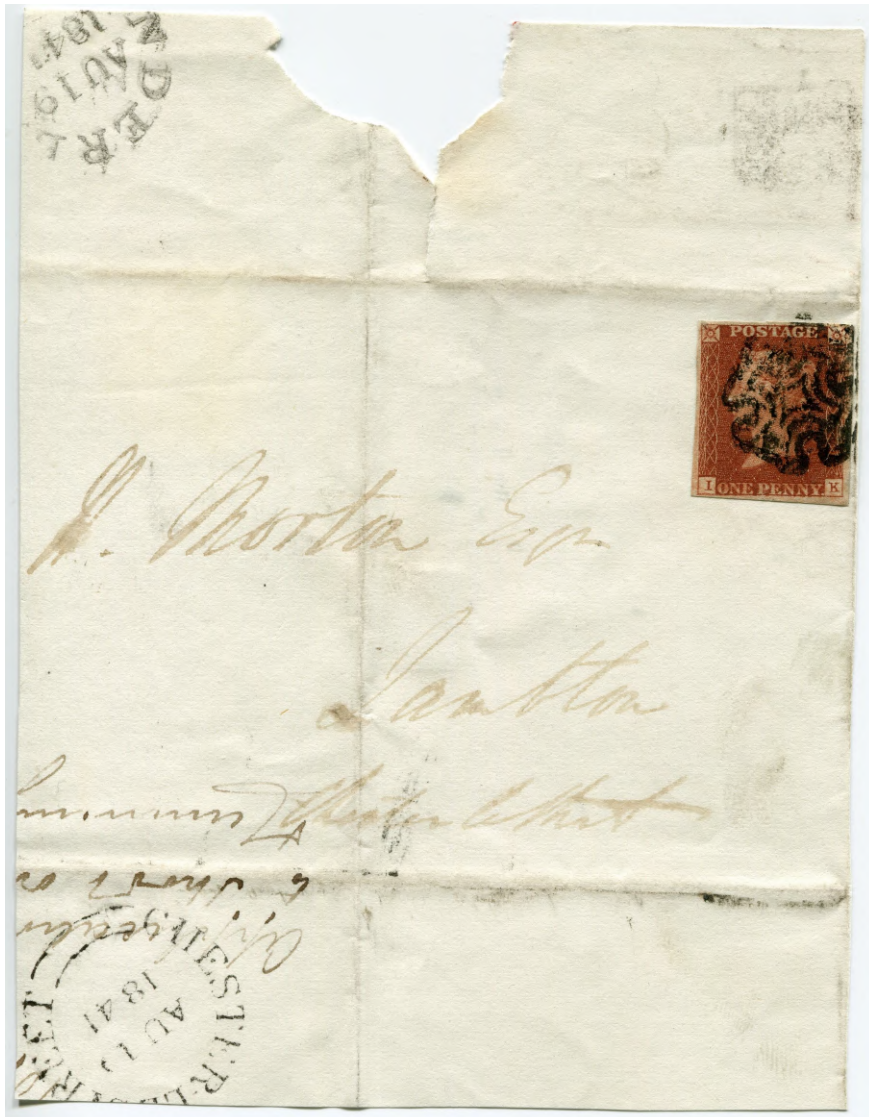 NDER
AU 19
1841
POSTAGE
I ONE PENNY K
H. Morton Esqr
Lambton
Chester le Street
to short
CHESTER-LE-STREET
AU 19
1841